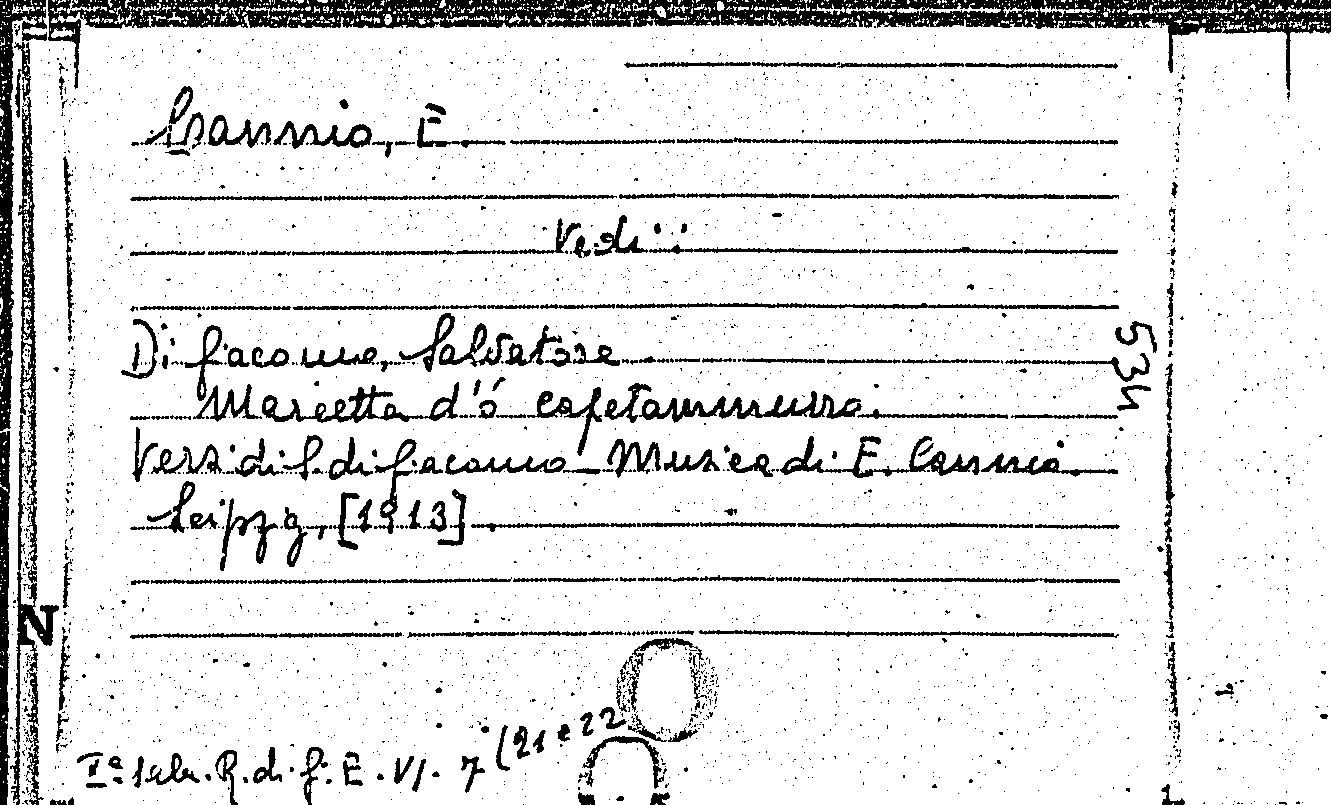 Cannio, E.
Vedi:
Di Giacomo, Salvatore.
Marietta d'ó Capetammurro.
Versi di S. di Giacomo - Musica di E. Cannio.
Leipzig, [1913].
534
N
Iª Sala. R. di G. E. VI. 7 (21 e 22